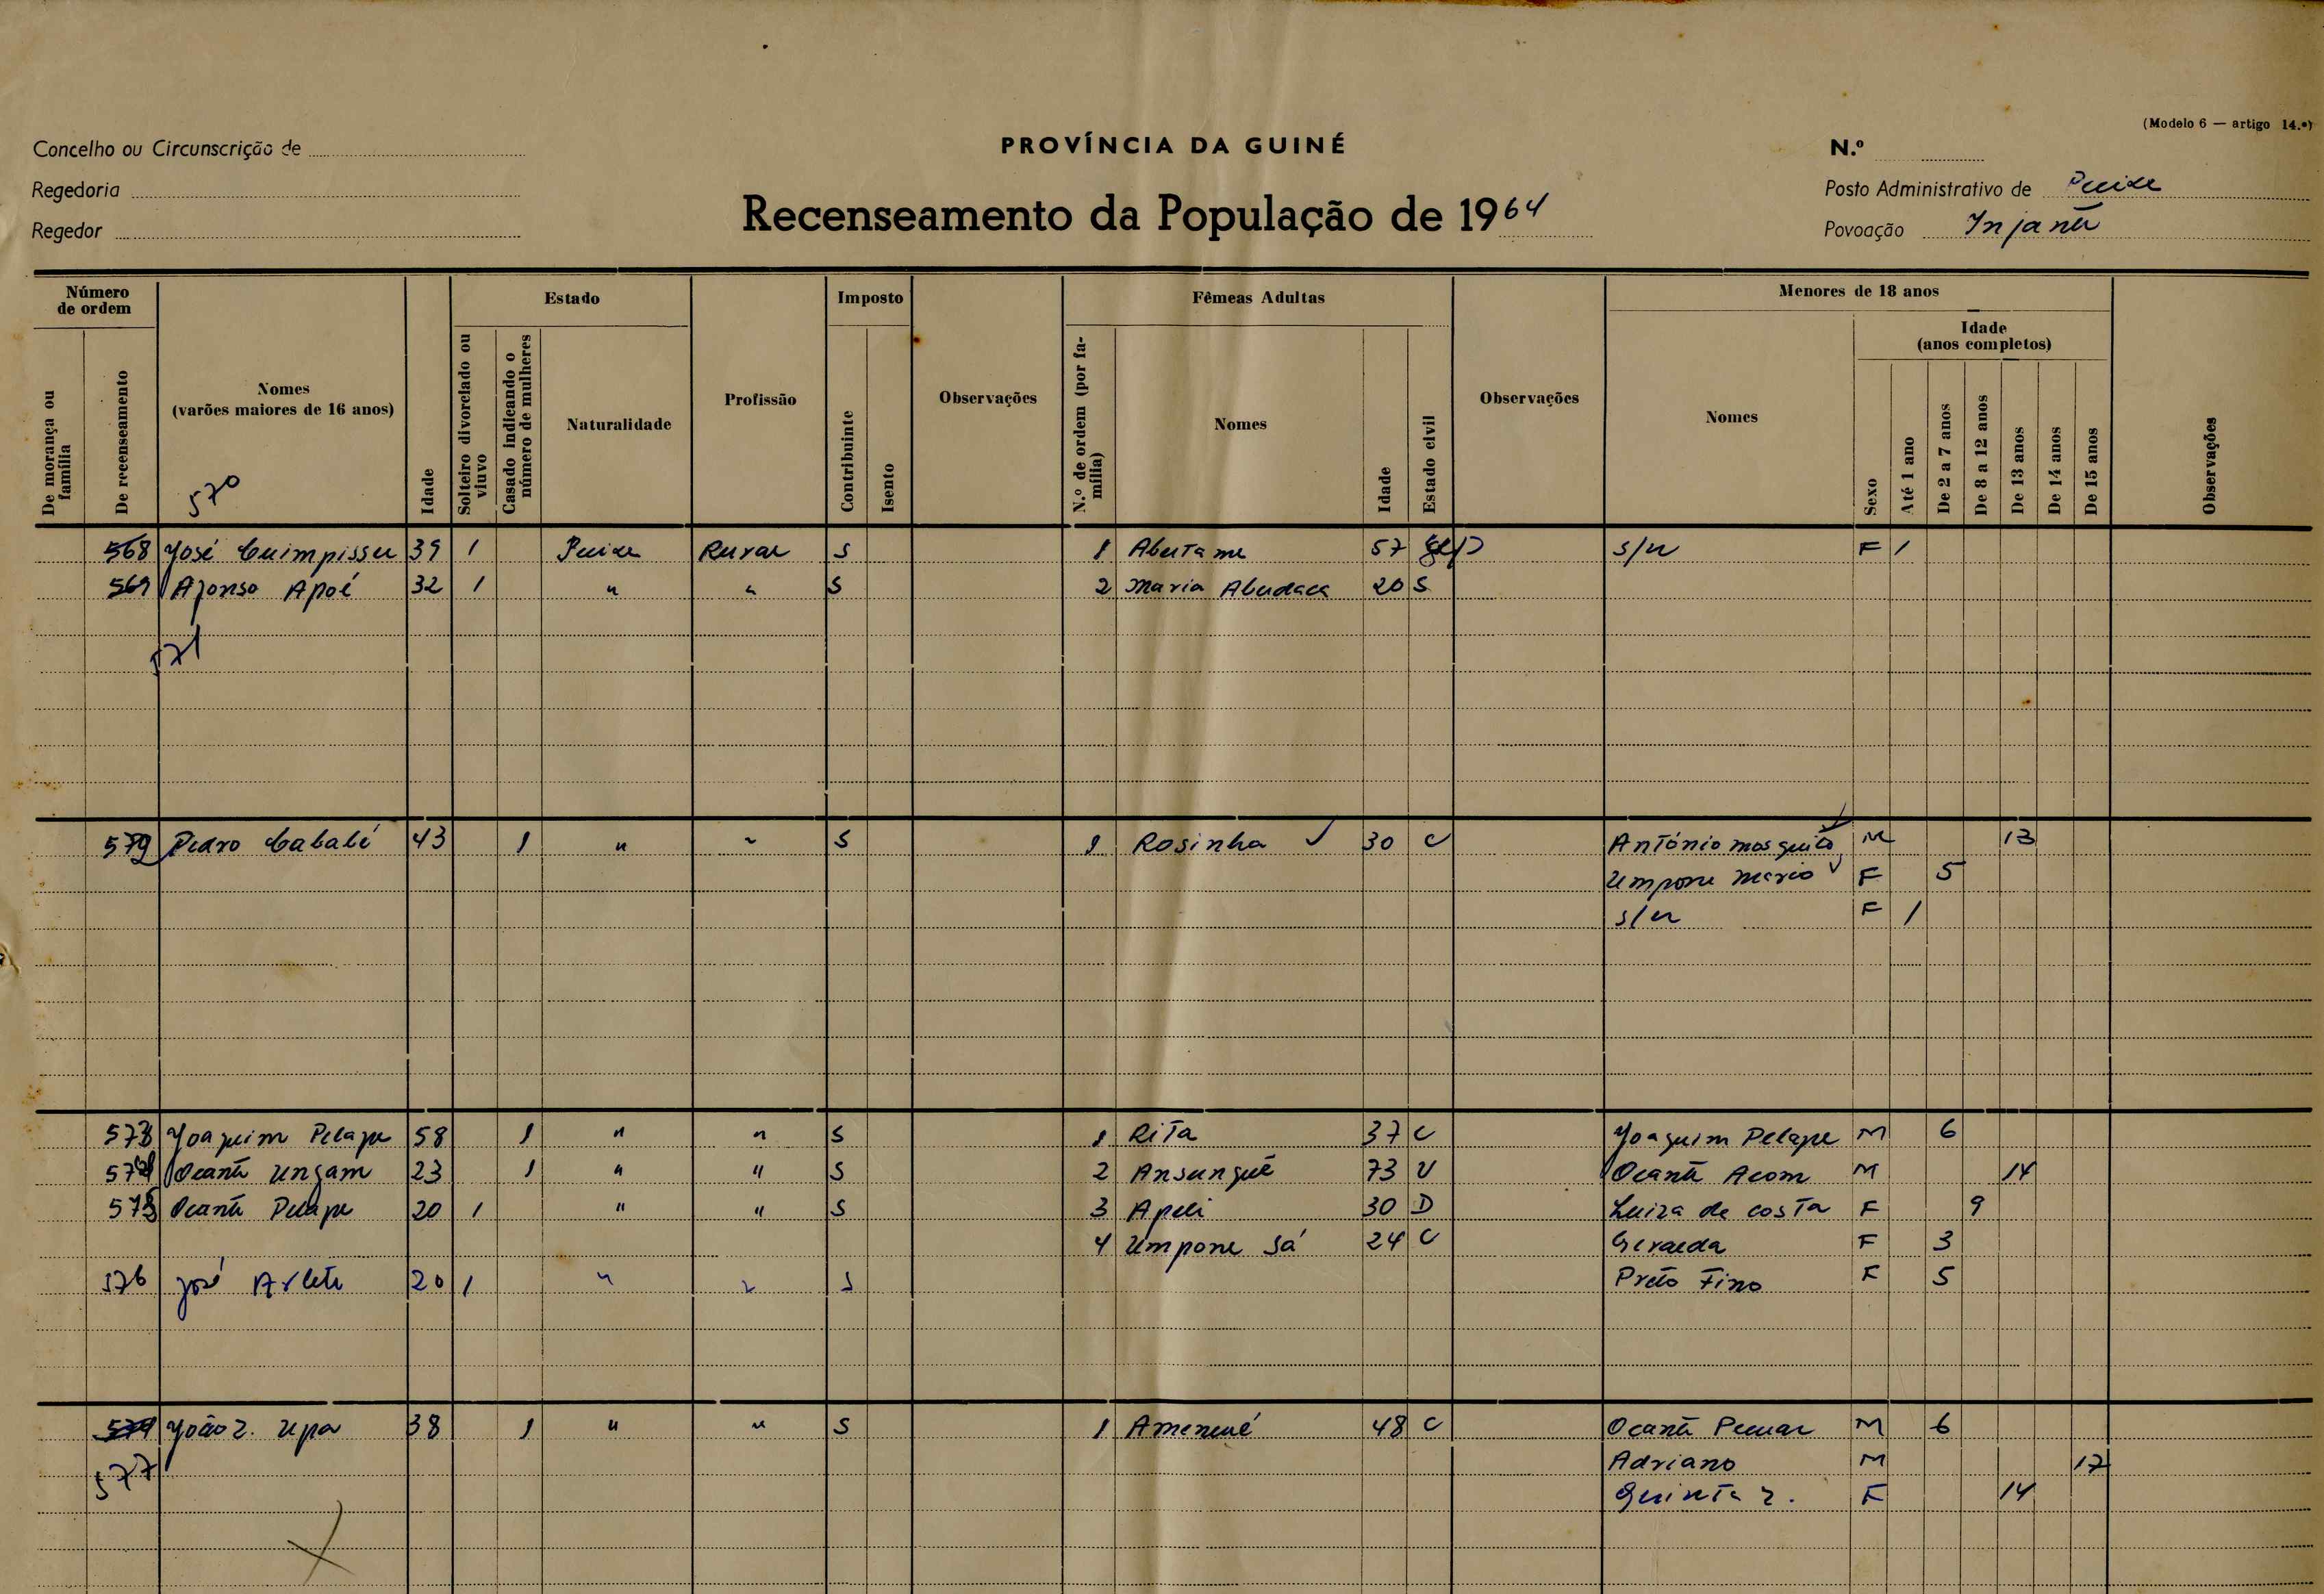 (Modelo 6 — artigo 14.º)
Concelho ou Circunscrição de
PROVÍNCIA DA GUINÉ
N.º
Regedoria
Recenseamento da População de 1964
Posto Administrativo de
Regedor
Povoação Injanã
Número de ordem
Estado
Imposto
Fêmeas Adultas
Menores de 18 anos
De morança ou família
De recenseamento
Nomes
(varões maiores de 16 anos)
570
Idade
Solteiro divorciado ou viuvo
Casado indicando o número de mulheres
Naturalidade
Profissão
Contribuinte
Isento
Observações
N.º de ordem (por família)
Nomes
Idade
Estado civil
Observações
Nomes
Sexo
Idade
(anos completos)
Até 1 ano
De 2 a 7 anos
De 8 a 12 anos
De 13 anos
De 14 anos
De 15 anos
Observações
568 José 39 1 Rural S 1 57 s/n F 1
569 Afonso Apoé 32 1 " " S 2 Maria 20 S
571
Pedro Cabalé 43 1 " " S 1 Rosinha 30 C António mosquito M 13
Umpone F 5
s/n F 1
573 Joaquim Pelape 58 1 " " S 1 Rita 37 C Joaquim Pelape M 6
574 Ocantê Ungam 23 1 " " S 2 Ansunguê 73 V Ocantê Acom M 14
575 Ocantê Pelape 20 1 " " S 3 Apili 30 D Luiza de costa F 9
4 Umpone Sá 24 C Geralda F 3
576 José Arlete 20 1 " " S Preto Fino F 5
João Z. Upa 38 1 " " S 1 48 C Ocantê M 6
577 Adriano M 17
Quinta Z. F 14